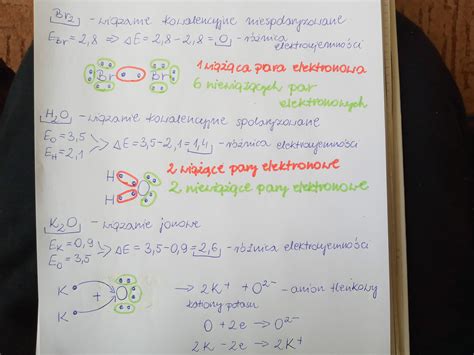 Br₂ - wiązanie kowalencyjne niespolaryzowane
E_Br = 2,8 ⇒ ΔE = 2,8 - 2,8 = 0 - różnica elektroujemności
Br Br
1 wiążąca para elektronowa
6 niewiążących par elektronowych
H₂O - wiązanie kowalencyjne spolaryzowane
E_O = 3,5
E_H = 2,1
> ΔE = 3,5 - 2,1 = 1,4 - różnica elektroujemności
H
H
O
2 wiążące pary elektronowe
2 niewiążące pary elektronowe
K₂O - wiązanie jonowe
E_K = 0,9
E_O = 3,5
> ΔE = 3,5 - 0,9 = 2,6 - różnica elektroujemności
K
K
+ O
→ 2K⁺ + O²⁻ - anion tlenkowy
kationy potasu
O + 2e → O²⁻
2K - 2e → 2K⁺